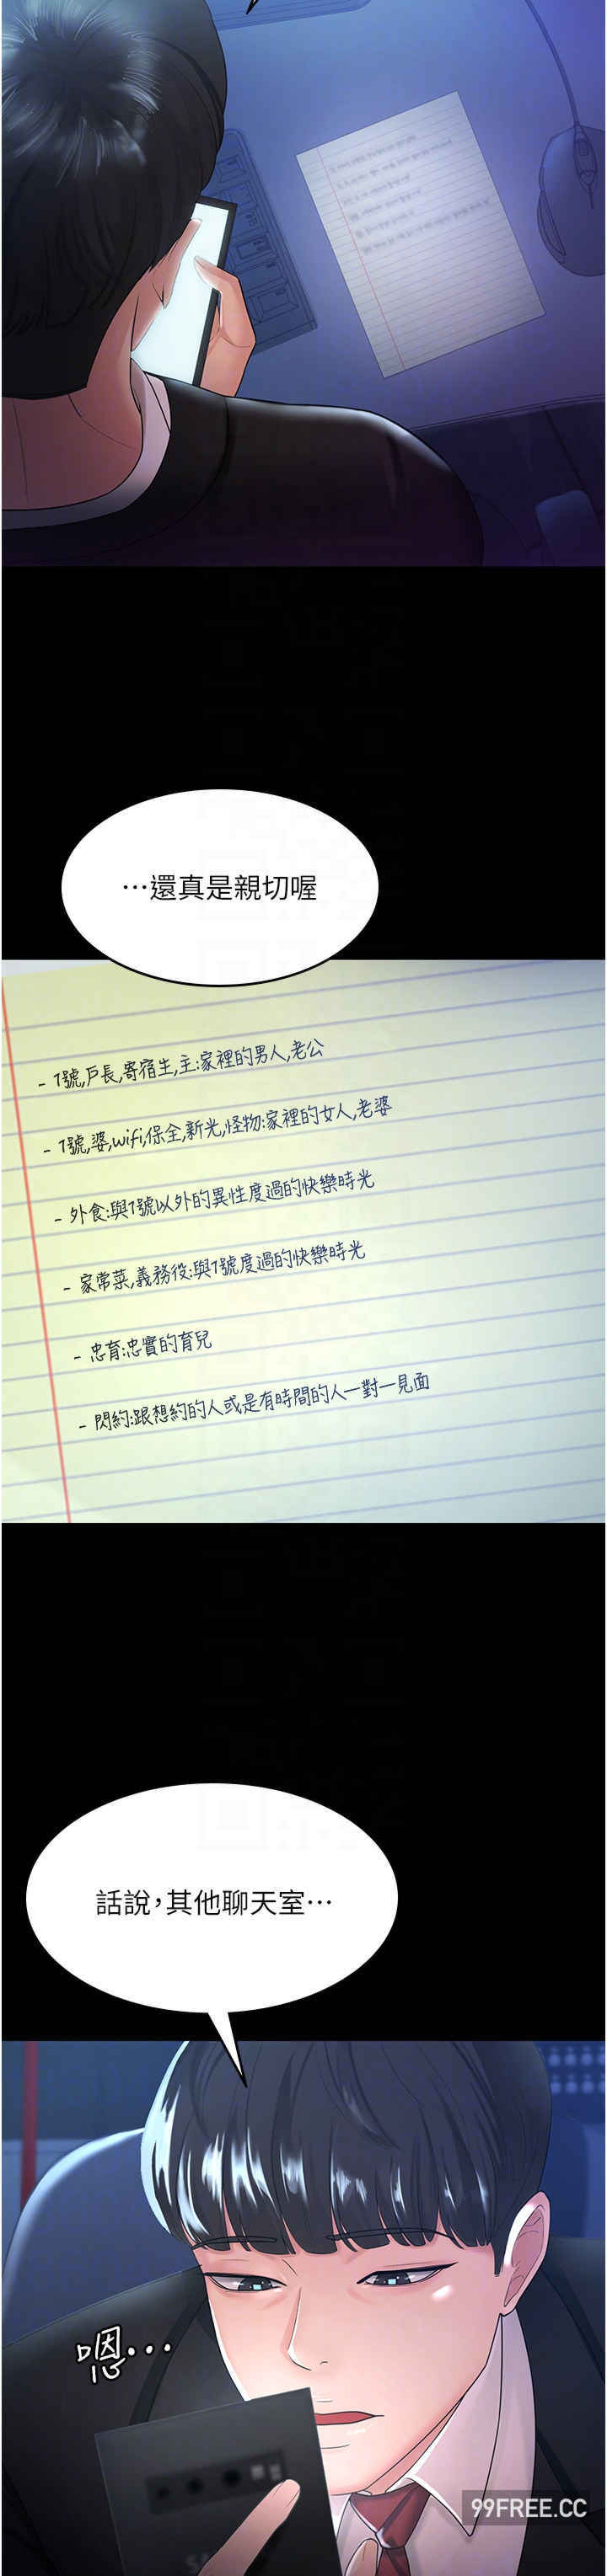 …還真是親切喔
- 1號,戶長,寄宿生,主:家裡的男人,老公
- 1號,婆,wifi,保全,新光,怪物:家裡的女人,老婆
- 外食:與1號以外的異性度過的快樂時光
- 家常菜,義務役:與1號度過的快樂時光
- 忠育:忠實的育兒
- 閃約:跟想約的人或是有時間的人一對一見面
話說,其他聊天室…
嗯...
99FREE.CC